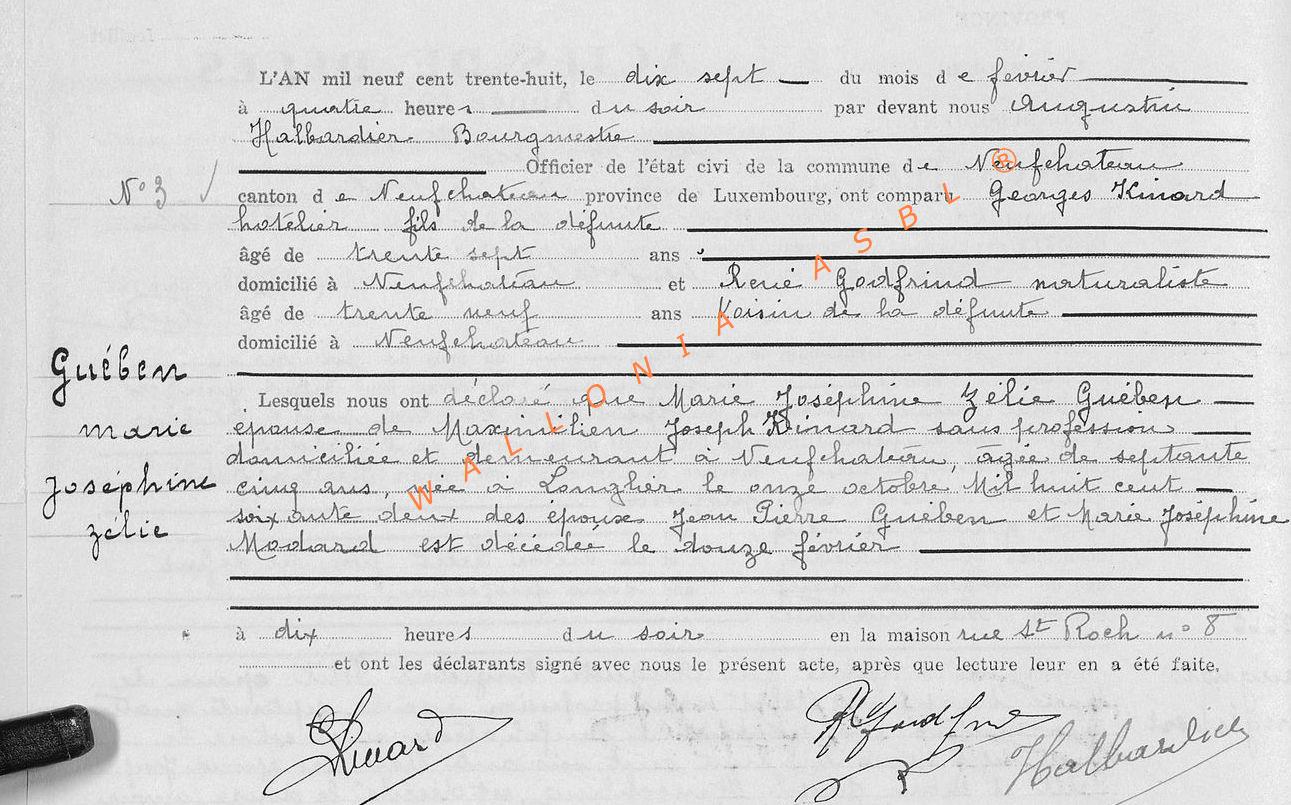 L'AN mil neuf cent trente-huit, le dix sept du mois de février
à quatre heures du soir par devant nous Augustin
Halbardier Bourgmestre
Officier de l'état civi de la commune de Neufchateau
N° 3
canton de Neufchateau province de Luxembourg, ont comparu Georges Kinard
hotelier fils de la défunte
âgé de trente sept ans
domicilié à Neufchateau et René Godfrind naturaliste
âgé de trente neuf ans Voisin de la défunte
domicilié à Neufchateau
Guében
marie
joséphine
zélie
Lesquels nous ont déclaré que Marie Joséphine Zélie Guében
épouse de Maximilien Joseph Kinard sans profession
domiciliée et demeurant à Neufchateau, âgée de septante
cinq ans, née à Longlier le onze octobre Mil huit cent
soixante deux des epoux Jean Pierre Guében et Marie Joséphine
Modard est décédée le douze février
à dix heures du soir en la maison rue St Roch n° 8
et ont les déclarants signé avec nous le présent acte, après que lecture leur en a été faite,
Kinard
R Godfrind
Halbardier
WALLONIA ASBL ®